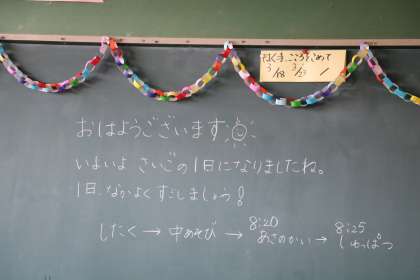 3/18 3/23
おはようございます
いよいよ さいごの1日になりましたね。
1日、なかよくすごしましょう!
8:20 8:25
したく → 中あそび → あさのかい → しゅっぱつ